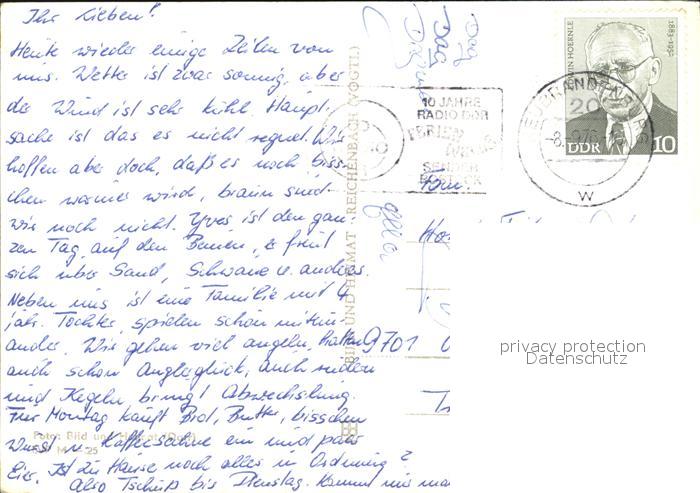 Ihr Lieben!
Heute wieder einige Zeilen von
uns. Wetter ist zwar sonnig, aber
der Wind ist sehr kühl. Haupt-
sache ist das es nicht regnet. Wir
hoffen aber doch, daß es noch biss-
chen wärmer wird, braun sind
wir noch nicht. Yves ist den gan-
zen Tag auf den Beinen, & freut
sich über Sand, Schwäne u. anderes.
Neben uns ist eine Familie mit 4
jähr. Tochter, spielen schön mitein-
ander. Wir gehen viel angeln, hatten
auch schon Anglerglück, auch rudern
und Kegeln bringt Abwechslung.
Für Montag kauft Brot, Butter, bisschen
Wurst u. Kaffeesahne ein und paar
Eier. Ist zu Hause noch alles in Ordnung?
Also Tschüß bis Dienstag. Kommt uns
Foto: Bild und Heimat
BILD UND HEIMAT REICHENBACH (VOGTL)
10 JAHRE
RADIO DDR
FERIEN
SENDER
EDWIN HOERNLE
1883-1952
DDR 10
BRANDENBURG
20
-8.-9.76
W
Fam.
9701
privacy protection
Datenschutz